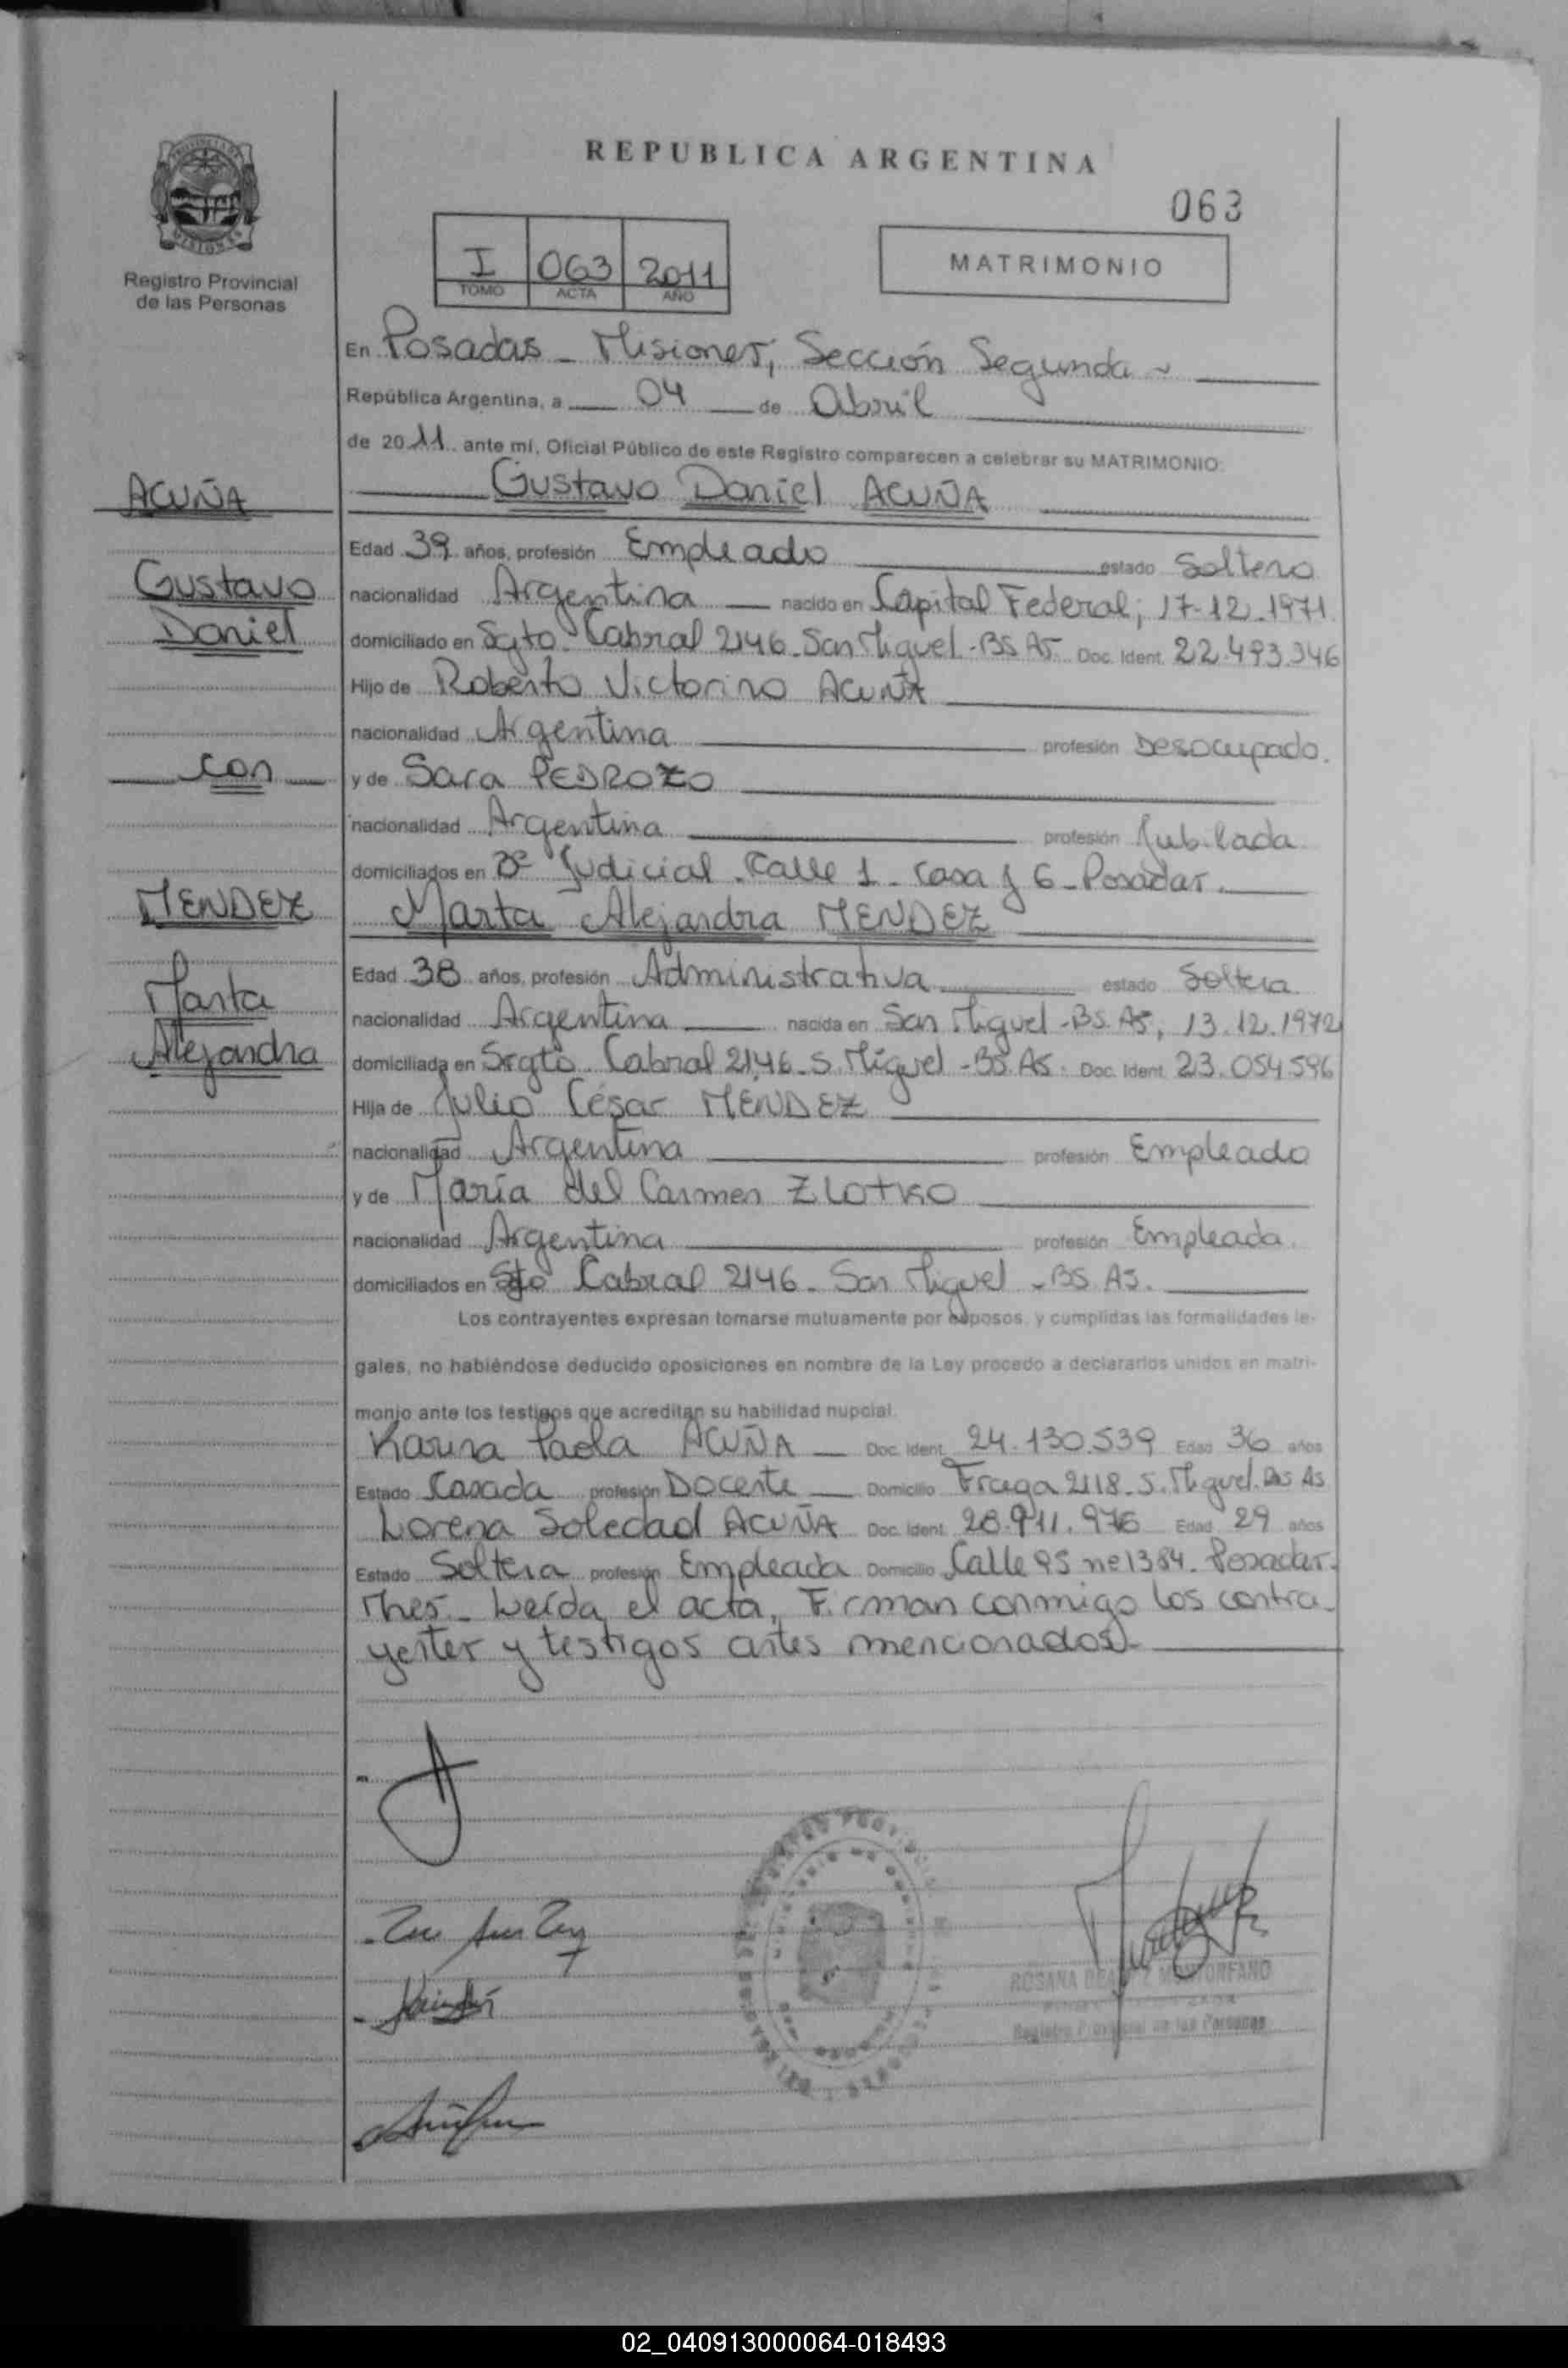 REPUBLICA ARGENTINA
063
PROVINCIA DE
MISIONES
Registro Provincial
de las Personas
I 063 2011
TOMO ACTA AÑO
MATRIMONIO
En Posadas - Misiones, Sección Segunda ~
República Argentina, a 04 de Abril
de 2011 ante mí, Oficial Público de este Registro comparecen a celebrar su MATRIMONIO:
ACUÑA
Gustavo Daniel ACUÑA
Edad 39 años, profesión Empleado estado Soltero
Gustavo
nacionalidad Argentina nacido en Capital Federal, 17-12-1971
Daniel
domiciliado en Sgto. Cabral 2146 - San Miguel - BS AS Doc. Ident. 22.493.346
Hijo de Roberto Victorino ACUÑA
nacionalidad Argentina profesión Desocupado.
con
y de Sara PEDROZO
nacionalidad Argentina profesión Jubilada
domiciliados en Bº Judicial - Calle 1 - Casa 6 - Posadas.
MENDEZ
Marta Alejandra MENDEZ
Edad 38 años, profesión Administrativa estado Soltera
Marta
nacionalidad Argentina nacida en San Miguel - BS. AS, 13.12.1972
Alejandra
domiciliada en Srgto Cabral 2146 - S. Miguel - BS. AS. Doc. Ident. 23.054.596
Hija de Julio César MENDEZ
nacionalidad Argentina profesión Empleado
y de María del Carmen ZLOTKO
nacionalidad Argentina profesión Empleada.
domiciliados en Sgto Cabral 2146 - San Miguel - BS. AS.
Los contrayentes expresan tomarse mutuamente por esposos, y cumplidas las formalidades le-
gales, no habiéndose deducido oposiciones en nombre de la Ley procedo a declararlos unidos en matri-
monio ante los testigos que acreditan su habilidad nupcial.
Karina Paola ACUÑA Doc. Ident. 24.130.539 Edad 36 años
Estado Casada profesión Docente Domicilio Fraga 2118 - S. Miguel. Bs As
Lorena Soledad ACUÑA Doc. Ident. 28.911.976 Edad 29 años
Estado Soltera profesión Empleada Domicilio Calle 95 nº 1384 - Posadas.
Mnes. - Leída el acta, Firman conmigo los contra-
yentes y testigos antes mencionados -
ROSANA
Registro Provincial de las Personas
02_040913000064-018493